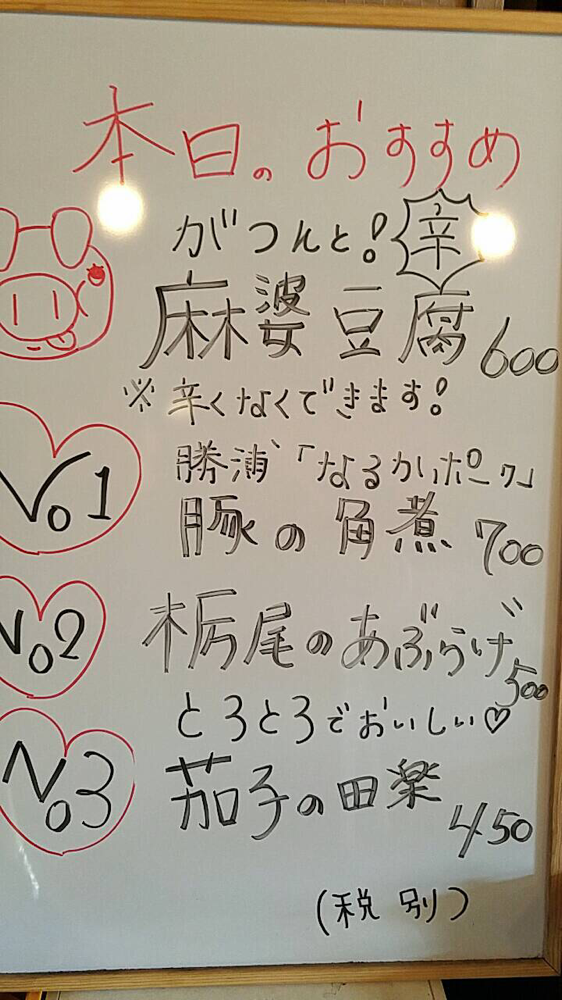 本日のおすすめ
がつんと！辛
麻婆豆腐 600
※辛くなくできます！
勝浦「なるかいポーク」
No1 豚の角煮 700
No2 栃尾のあぶらげ 500
とろとろでおいしい♡
No3 茄子の田楽 450
(税別)